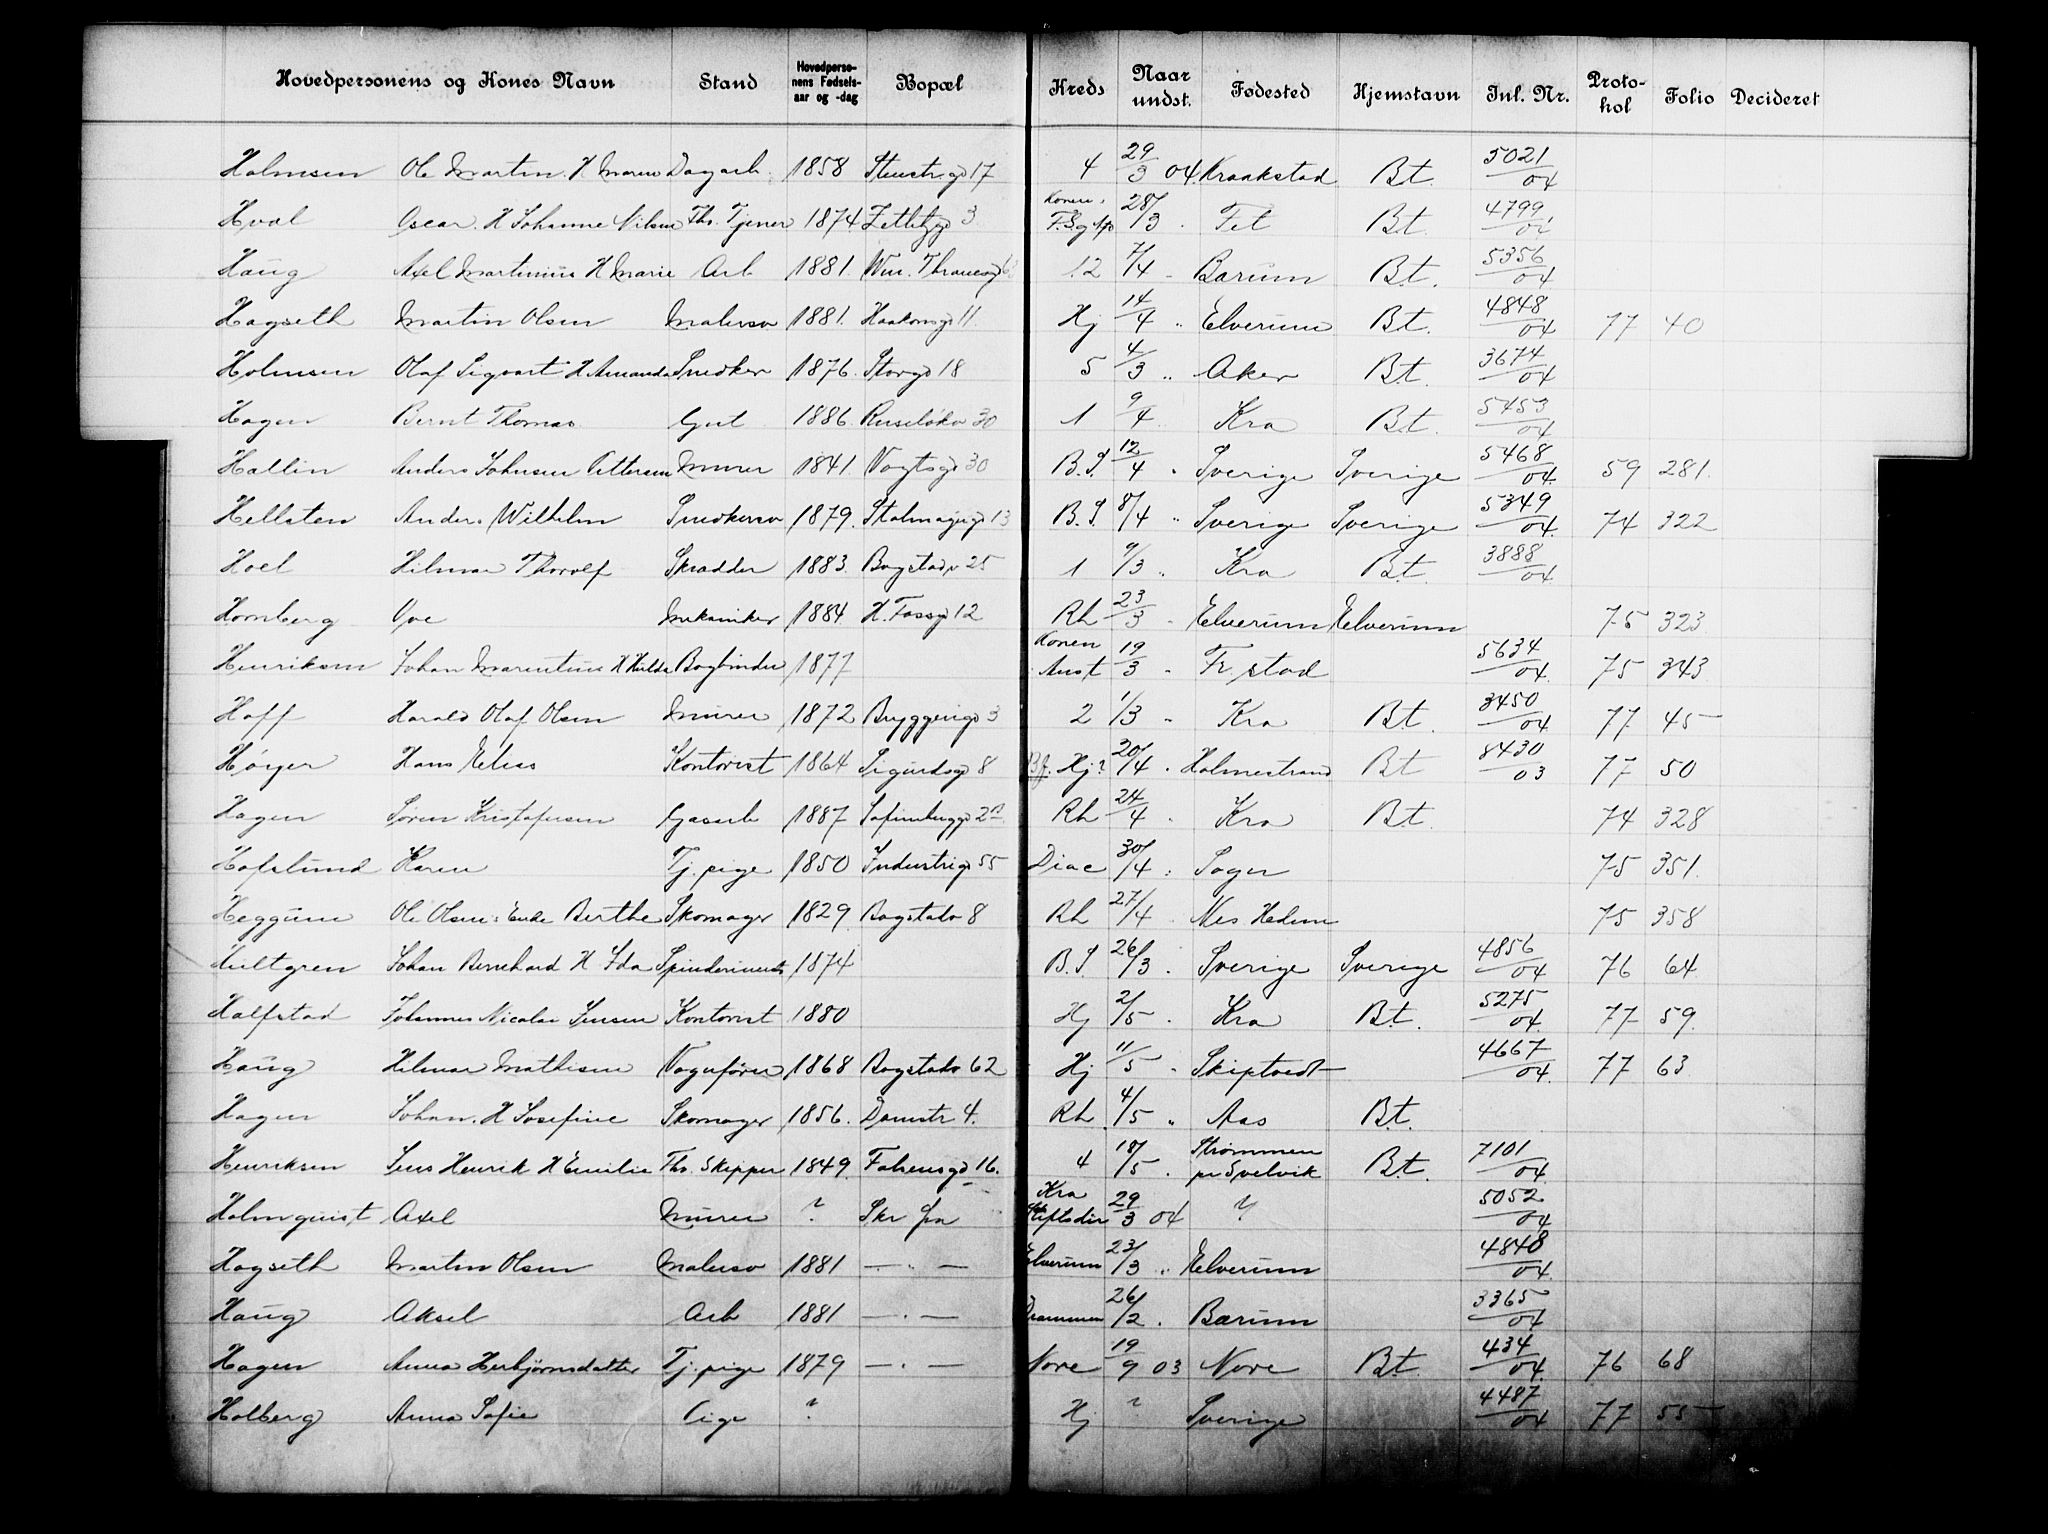 Hovedpersonens og Kones Navn Stand Hovedpersonens Fødselsaar og -dag Bopæl Kreds Naar undst. Fødested Hjemstavn Inl. Nr. Protokol Folio Decideret
Holmsen Ole Martin. H. Maren Dagarb. 1858 Stenstrgd 17 4 29/3 04 Kraakstad Bt. 5021/04
Hval Oscar. H Johanne Nilsen Fhv. Tjener 1874 3 Konen 28/3 Fet Bt. 4799/04
Haug Axel Martinius H Marie Arb 1881. Wm. Thranesgd 12 7/4 " Bærum Bt. 5356/04
Hagseth Martin Olsen Malersv 1881. Haakonsgd 11 Hj 14/4 " Elverum Bt. 4848/04 77 40
Holmsen Olaf Sigvart H Amanda Snedker 1876. Storgd 18 5 4/3 " Aker Bt. 3674/04
Hagen Bernt Thomas Gut 1886. Ruseløkv 30 1 9/4 Kra Bt. 5453/04
Hallin Anders Johnsen Pettersen Murer 1841. Vogtsgd 30 B.S. 12/4 " Sverige Sverige 5468/04 59 281.
Hellsten Anders Wilhelm Snedkersv 1879. Stolmagergd 13 B.S. 8/4 " Sverige Sverige 5349/04 74 322
Hoel Hilmar Thorolf Skrædder 1883. Bogstadv 25 1 9/3 " Kra Bt. 3888/04
Hornberg Ove Mekaniker 1884 H. Fossgd 12 Rh 23/3 " Elverum Elverum 75 323
Henriksen Johan Marentius H Hulda Bogbinder 1877 Konen Anst 19/3 " Fr.stad 5634/04 75 343
Hoff Harald Olaf Olsen Murer 1872 Bryggerigd 3 2 1/3 " Kra Bt. 3450/04 77 45
Høyer Hans Elias Kontorist 1864 Sigurdsgd 8 Bf. Hj? 20/4 " Holmestrand Bt 8430/03 77 50
Hagen Søren Kristofersen Gasarb 1887 Sofienberggd 2 Rh 24/4 " Kra Bt. 74 328
Hofslund Karen Tj. pige 1850 Industrigd 55 Diac 30/4 " Sogn 75 351.
Heggum Ole Olsens Enke Berthe Skomager 1829. Bogstadv 8 Rh 27/4 " Nes Hedem 75 358
Hultgren Johan Bernhard H Ida Spinderimest 1874 B.S. 26/3 . Sverige Sverige 4856/04 76 64
Halfstad Johannes Nicolai Jensen Kontorist 1880 Hj 2/5 . Kra Bt. 5275/04 77 59.
Haug Hilmar Mathisen Vognfører 1868 Bogstadv 62 Hj 11/5 " Skiptvedt 4667/04 77 63
Hagen Johan. H Josefine Skomager 1856. Damstr 4. Rh. 4/5 " Aas Bt.
Henriksen Jens Henrik H Emilie Fhv. Skipper 1849. Falsensgd 16. 4 18/5 . Strømmen pr Svelvik Bt. 7101/04
Holmquist Axel Murer ? Skr fra Kra Stiftsdir 29/3 04 ? 5052/04
Hagseth Martin Olsen Malersv 1881 — " — Elverum 23/3 " Elverum 4848/04
Haug Aksel Arb 1881 — . — Drammen 26/2 . Bærum 3365/04
Hagen Anna Herbjørnsdatter Tj. pige 1879 — . — Nore 19/9 03 Nore Bt. 434/04 76 68
Holberg Anna Sofie Pige ? Hj ? Sverige 4487/04 77 55